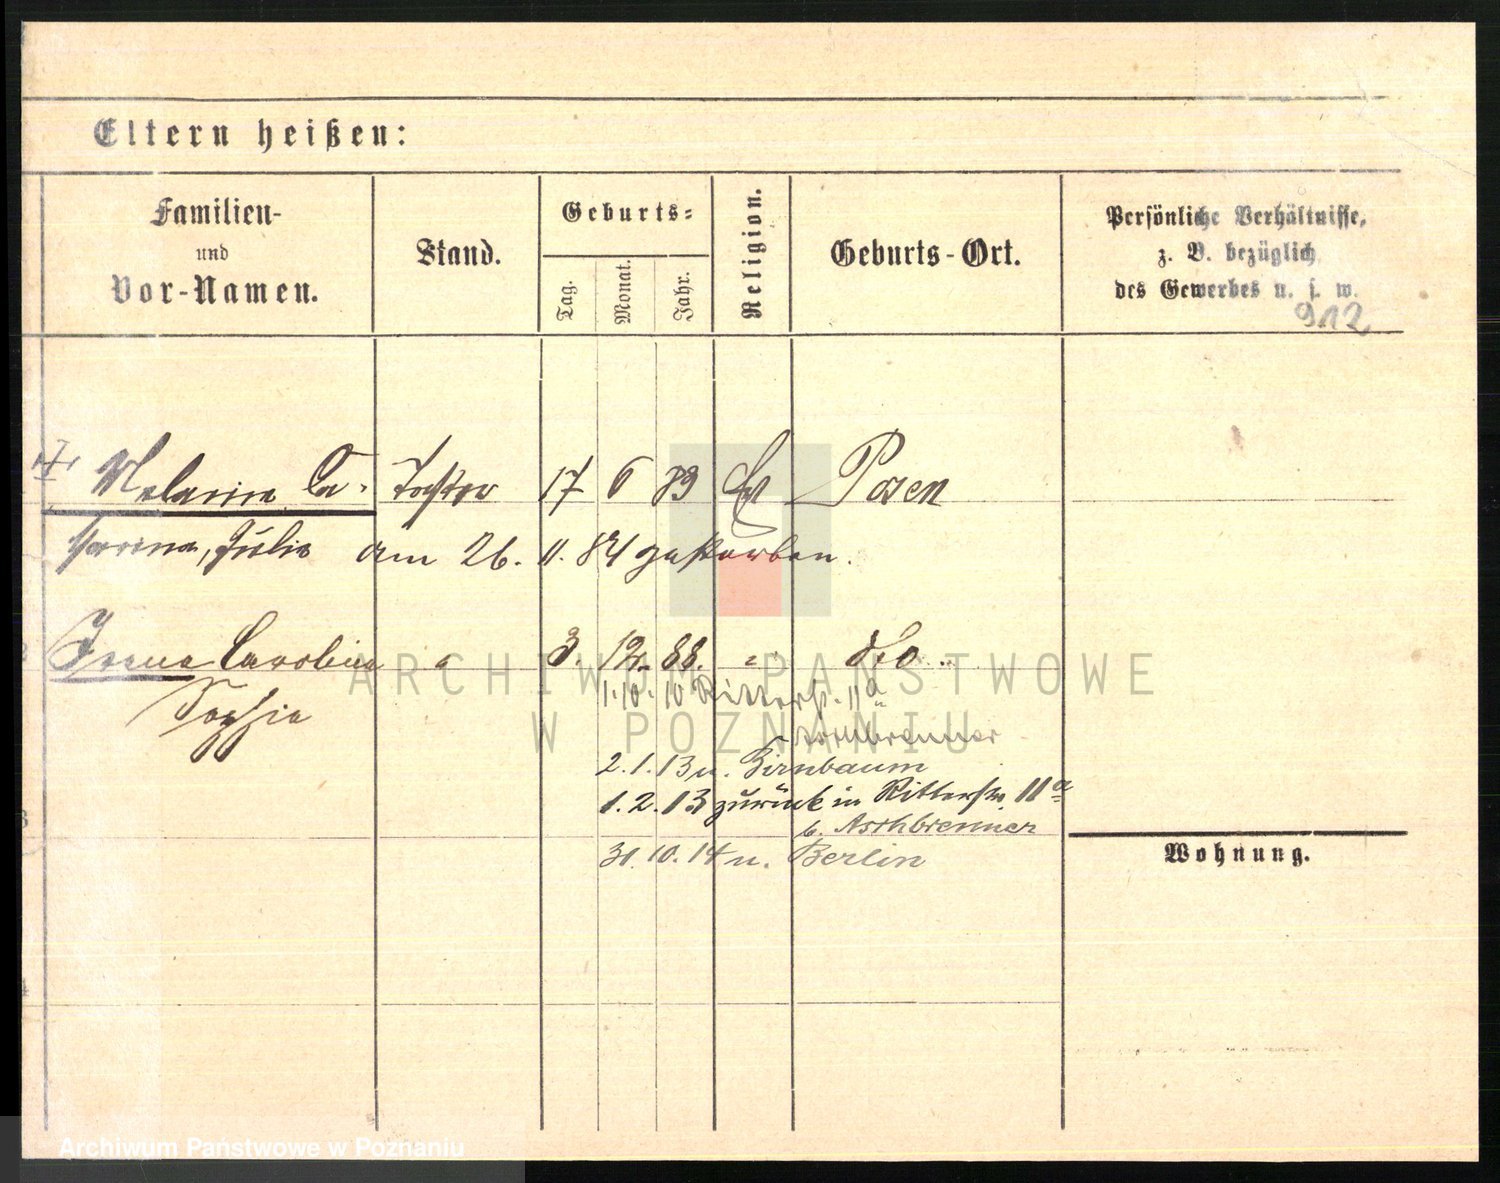 Eltern heißen:
Familien-
und
Vor-Namen.
Stand.
Geburts-
Tag.
Monat.
Jahr.
Religion.
Geburts-Ort.
Persönliche Verhältnisse,
z. B. bezüglich
des Gewerbes u. s. w.
912
Melanie Ca- Tochter 17 6 83 Ev Posen
Julie am 26. 11. 84 gestorben.
Irene Carolina " 3. 12. 88. " dto
Sophie
1. 10. 10 Ritterstr. 11a
2. 1. 13 n. Birnbaum
1. 2. 13 zurück in Ritterstr. 11a
b. Aschbrenner
31. 10. 14 n. Berlin
Wohnung.
ARCHIWUM PAŃSTWOWE
W POZNANIU
Archiwum Państwowe w Poznaniu